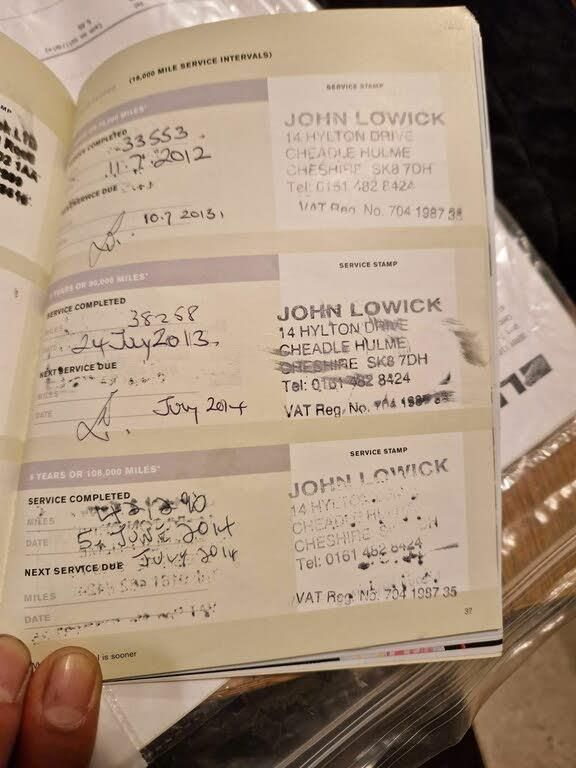 (18,000 MILE SERVICE INTERVALS)
MILES*
SERVICE STAMP
COMPLETED
33553.
11.7.2012
SERVICE DUE
10.7 2013.
JOHN LOWICK
14 HYLTON DRIVE
CHEADLE HULME
CHESHIRE SK8 7DH
Tel: 0161 482 8424
VAT Reg. No. 704 1987 35
YEARS OR 90,000 MILES*
SERVICE STAMP
SERVICE COMPLETED
MILES 38258
DATE 24 July 2013.
NEXT SERVICE DUE
MILES
DATE July 2014
JOHN LOWICK
14 HYLTON DRIVE
CHEADLE HULME,
CHESHIRE SK8 7DH
Tel: 0161 482 8424
VAT Reg. No. 704 1987 35
YEARS OR 108,000 MILES*
SERVICE STAMP
SERVICE COMPLETED
MILES
DATE JUNE 2014
NEXT SERVICE DUE JULY 2014
MILES
DATE
JOHN LOWICK
14 HYLTON
CHEADLE
CHESHIRE
Tel: 0161 482 8424
VAT Reg. No. 704 1987 35
37
is sooner